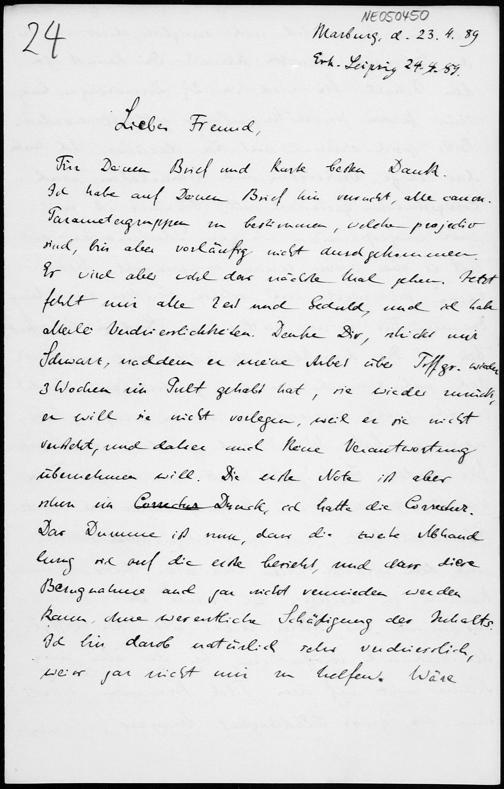 24
NE050450
Marburg, d. 23.4.89
Erh. Leipzig 24.4.89.
Lieber Freund,
Für Deinen Brief und Karte besten Dank.
Ich habe auf Deinen Brief hin versucht, alle canon.
Parametergruppen zu bestimmen, welche projectiv
sind, bin aber vorläufig nicht durchgekommen.
Er wird aber wohl das nächste Mal gehen. Jetzt
fehlt mir alle Zeit und Geduld, und ich habe
allerlei Verdriesslichkeiten. Denke Dir, schickt mir
Schwarz, nachdem er meine Arbeit über Tffgr. wieder
3 Wochen im Pult gehabt hat, sie wieder zurück,
er will sie nicht vorlegen, weil er sie nicht
versteht, und daher auch keine Verantwortung
übernehmen will. Die erste Note ist aber
schon im Correctur Druck, ich hatte die Correctur.
Das Dumme ist nun, dass die zweite Abhand
lung sich auf die erste bezieht, und dass diese
Bezugnahme auch gar nicht vermieden werden
kann, ohne wesentliche Schädigung des Inhalts.
Ich bin darob natürlich sehr verdriesslich,
weiss gar nicht mir zu helfen. Wäre